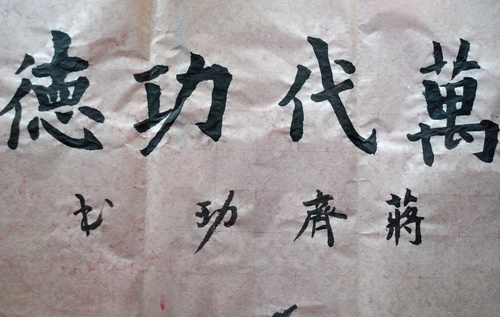 萬代功德
蔣齊功书